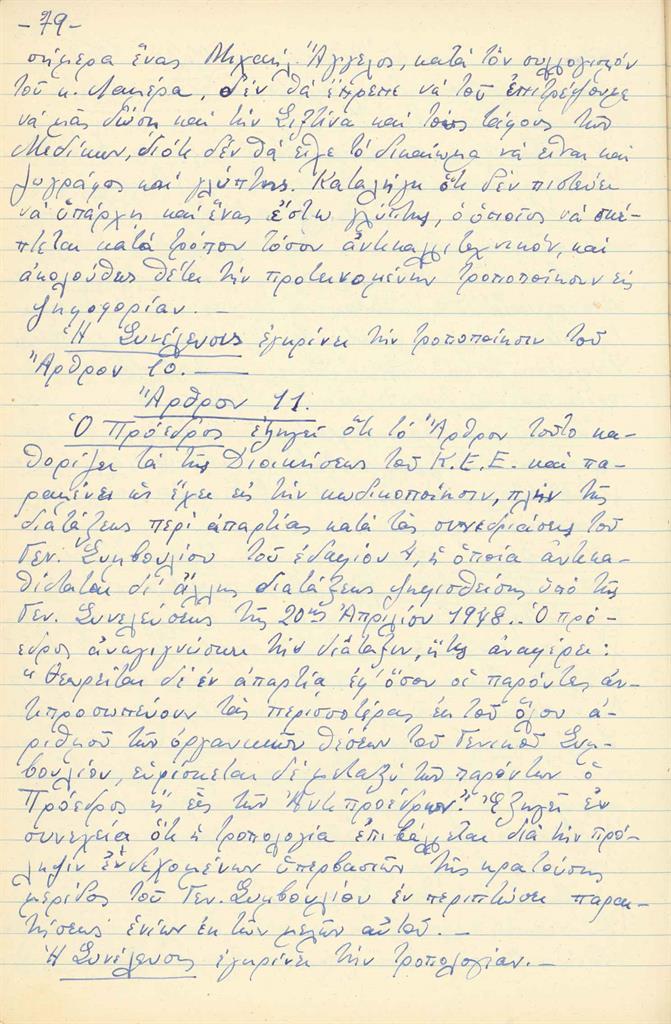 - 79 -
σήμερα ἕνας Μιχαὴλ Ἄγγελος, κατὰ τὸν συλλογισμὸν
τοῦ κ. Λαμέρα, δὲν θὰ ἔπρεπε νὰ τοῦ ἐπιτρέψουμε
νὰ μᾶς δώσῃ καὶ τὴν Σιξτίνα καὶ τοὺς τάφους τῶν
Μεδίκων, διότι δὲν θὰ εἶχε τὸ δικαίωμα νὰ εἶναι καὶ
ζωγράφος καὶ γλύπτης. Καταλήγει ὅτι δὲν πιστεύει
νὰ ὑπάρχῃ καὶ ἕνας ἔστω γλύπτης, ὁ ὁποῖος νὰ σκέ-
πτεται κατὰ τρόπον τόσον ἀντικαλλιτεχνικόν, καὶ
ἀκολούθως θέτει τὴν προτεινομένην τροποποίησιν εἰς
ψηφοφορίαν. —
Ἡ Συνέλευσις ἐγκρίνει τὴν τροποποίησιν τοῦ
Ἄρθρου 10. —
Ἄρθρον 11.
Ὁ Πρόεδρος ἐξηγεῖ ὅτι τὸ Ἄρθρον τοῦτο κα-
θορίζει τὰ τῆς Διοικήσεως τοῦ Κ.Ε.Ε. καὶ πα-
ραμένει ὡς ἔχει εἰς τὴν κωδικοποίησιν, πλὴν τῆς
διατάξεως περὶ ἀπαρτίας κατὰ τὰς συνεδριάσεις τοῦ
Γεν. Συμβουλίου τοῦ ἐδαφίου 4, ἡ ὁποία ἀντικα-
θίσταται δι' ἄλλης διατάξεως ψηφισθείσης ὑπὸ τῆς
Γεν. Συνελεύσεως τῆς 20ης Ἀπριλίου 1948.. Ὁ πρό-
εδρος ἀναγιγνώσκει τὴν διάταξιν, ἥτις ἀναφέρει:
"Θεωρεῖται δὲ ἐν ἀπαρτίᾳ ἐφ' ὅσον οἱ παρόντες ἀν-
τιπροσωπεύουν τὰς περισσοτέρας ἐκ τοῦ ὅλου ἀ-
ριθμοῦ τῶν ὀργανικῶν θέσεων τοῦ Γενικοῦ Συμ-
βουλίου, εὑρίσκεται δὲ μεταξὺ τῶν παρόντων ὁ
Πρόεδρος ἢ εἷς τῶν Ἀντιπροέδρων." Ἐξηγεῖ ἐν
συνεχείᾳ ὅτι ἡ τροπολογία ἐπιβάλλεται διὰ τὴν πρό-
ληψιν ἐνδεχομένων ὑπερβασιῶν τῆς κρατούσης
μερίδος τοῦ Γεν. Συμβουλίου ἐν περιπτώσει παραι-
τήσεως ἐνίων ἐκ τῶν μελῶν αὐτοῦ. —
Ἡ Συνέλευσις ἐγκρίνει τὴν τροπολογίαν. —